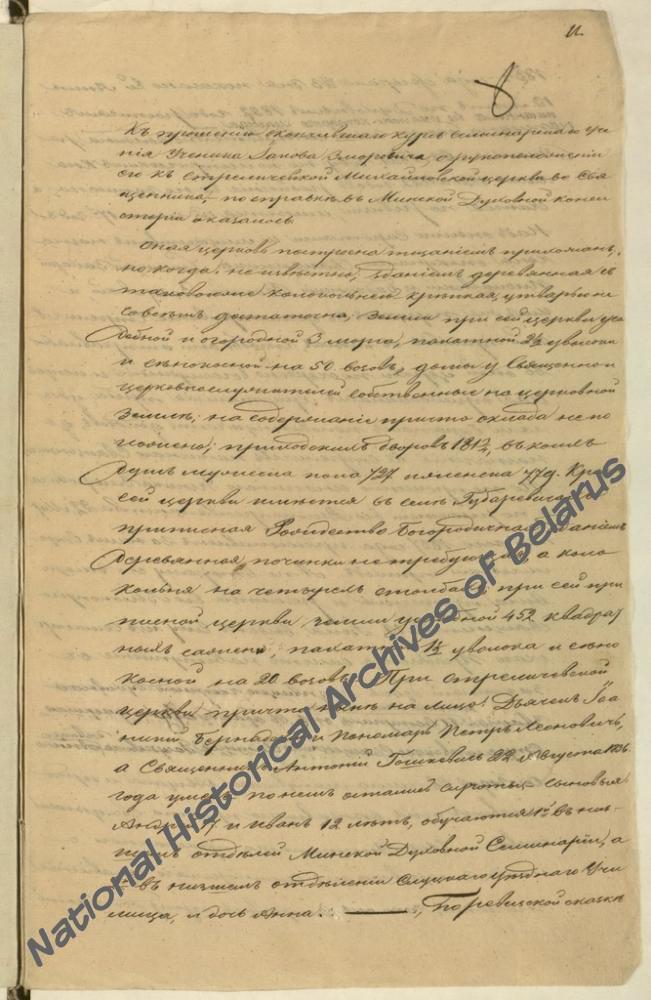 11.
Къ прошенію окончившаго курсъ семинарскаго уче
нія Ученика Іакова Змаревича, о рукоположеніи
его къ Стреличевской Михайловской церкви во Свя
щенника, по справкѣ въ Минской Духовной Консис
торіи оказалось
Оная церковь построена тщаніемъ прихожанъ,
но когда, не извѣстно, зданіемъ деревянная съ
таковоюже колокольнею крѣпкая, утварью
достаточна, земли при сей церкви уса
дебной и огородной 3 морга, пахатной 2½ уволоки
и сѣнокосной на 50 возовъ, домы у Священно и
церковнослужителей собственные на церковной
землѣ; на содержаніе причта оклада не по
ложено; приходскихъ дворовъ 181½, въ коихъ
душъ мужеска пола 727 и женска 779. Къ
сей церкви имѣется въ селѣ Губаревичахъ
приписная Рождество Богородичная зданіемъ
деревянная починки не требующая а коло
кольня на четырехъ столбахъ, при сей при
писной церкви земли усадебной 452 квадрат
ныхъ сажени, пахатной 1½ уволока и сѣно
косной на 20 возовъ. При Стреличевской
церкви причта нынѣ на лицо: Дьячекъ Іоа
нникій и Пономарь Петръ Леоновичъ,
а Священникъ Антоній Гошкевичъ 22 Августа 1836
года умеръ по немъ остались сироты сыновья
Андрей 17 и Иванъ 12 лѣтъ, обучаются 1й въ низ
шемъ отдѣленіи Минской Духовной Семинаріи, а
въ низшемъ отдѣленіи Слуцкаго уѣзднаго Учи
лища, и дочь Анна. По ревизской сказкѣ
National Historical Archives of Belarus